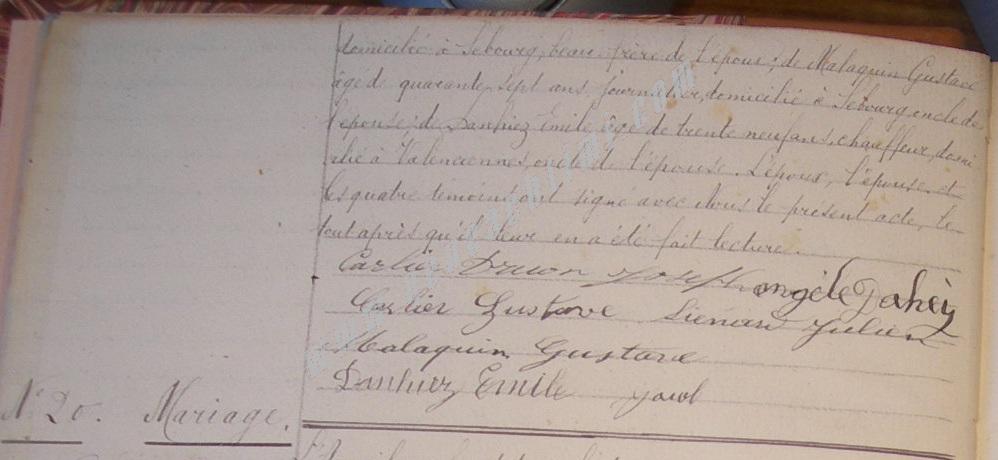 domicilié à Sebourg, beau-frère de l'époux; de Malaquin Gustave
âgé de quarante sept ans, journalier, domicilié à Sebourg oncle de
l'épouse; de Danhiez Emile, âgé de trente neuf ans, chauffeur, domi
cilié à Valenciennes, oncle de l'épouse. L'époux, l'épouse et
les quatre témoins ont signé avec Nous le présent acte, le
tout après qu'il leur en a été fait lecture.
Carlier Druon Joseph angèle Dahiez
Carlier Gustave Lienard Julien
Malaquin Gustave
Danhiez Emile
N° 20. Mariage.